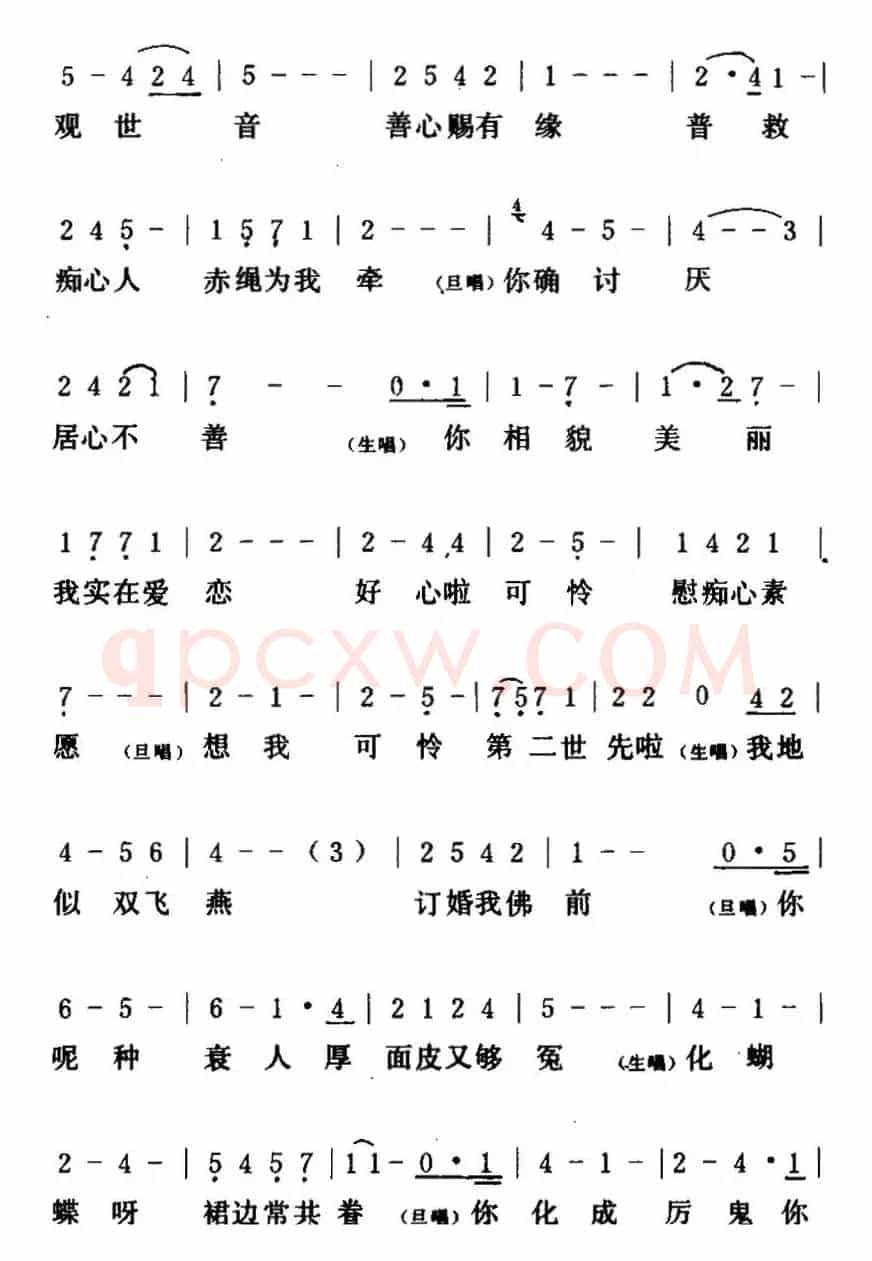 5 - 4 2 4 | 5 - - - | 2 5 4 2 | 1 - - - | 2 · 4 1 - |
观世音 善心赐有缘 普救
2 4 5 - | 1 5 7 1 | 2 - - - | 4 4 - 5 - | 4 - - 3 |
痴心人 赤绳为我牵 (旦唱)你确讨厌
2 4 2 1 | 7 - - 0 · 1 | 1 - 7 - | 1 · 2 7 - |
居心不善 (生唱)你相貌美丽
1 7 7 1 | 2 - - - | 2 - 4 4 | 2 - 5 - | 1 4 2 1 |
我实在爱恋 好心啦可怜 慰痴心素
qpcxw.COM
7 - - - | 2 - 1 - | 2 - 5 - | 7 5 7 1 | 2 2 0 4 2 |
愿 (旦唱)想我可怜第二世先啦(生唱)我地
4 - 5 6 | 4 - - (3) | 2 5 4 2 | 1 - - 0 · 5 |
似双飞燕 订婚我佛前 (旦唱)你
6 - 5 - | 6 - 1 · 4 | 2 1 2 4 | 5 - - - | 4 - 1 - |
呢种衰人厚面皮又够冤 (生唱)化蝴
2 - 4 - | 5 4 5 7 | 1 1 - 0 · 1 | 4 - 1 - | 2 - 4 · 1 |
蝶呀 裙边常共眷 (旦唱)你化成厉鬼你